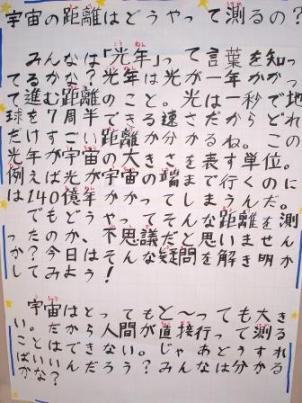 宇宙の距離はどうやって測るの?
みんなは「光年」って言葉を知っ
てるかな?光年は光が一年かかっ
て進む距離のこと。光は一秒で地
球を7周半できる速さだからどれ
だけすごい距離か分かるね。この
光年が宇宙の大きさを表す単位。
例えば光が宇宙の端まで行くのに
は140億年かかってしまうんだ。
でもどうやってそんな距離を測
ったのか、不思議だと思いません
か?今日はそんな疑問を解き明か
してみよう!
宇宙はとってもと〜っても大き
い。だから人間が直接行って測る
ことはできない。じゃあどうすれ
ばいいんだろう?みんなは分かる
かな?